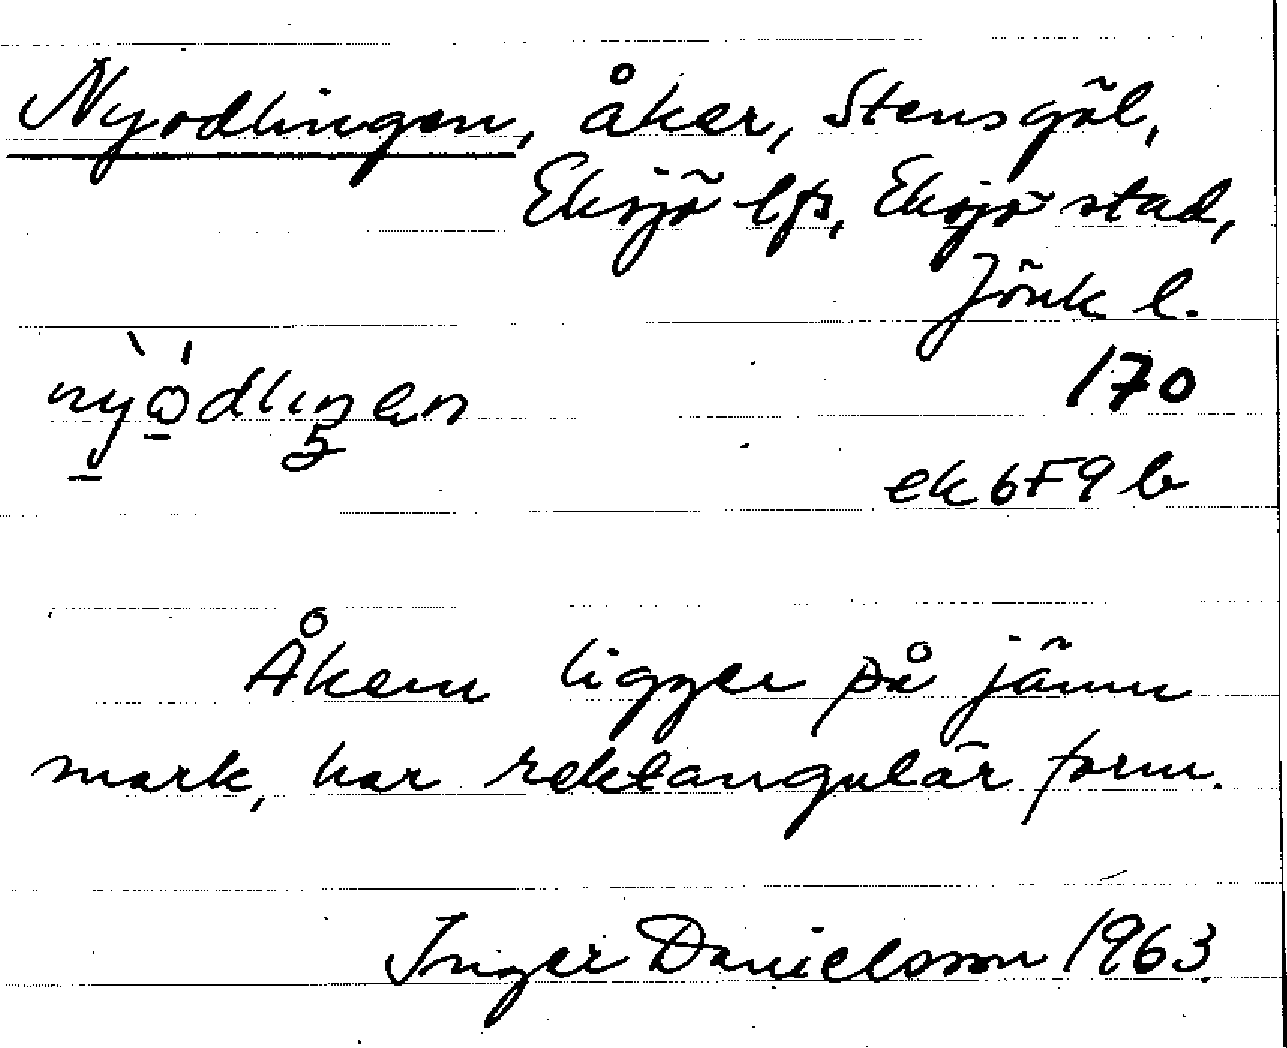 Nyodlingen, åker, Stensgöl,
Eksjö lfs, Eksjö stad,
Jönk l.
170
nỳódlıŋen
ek 6F9 b
Åkern ligger på jämn
mark, har rektangulär form.
Inger Danielsson 1963.